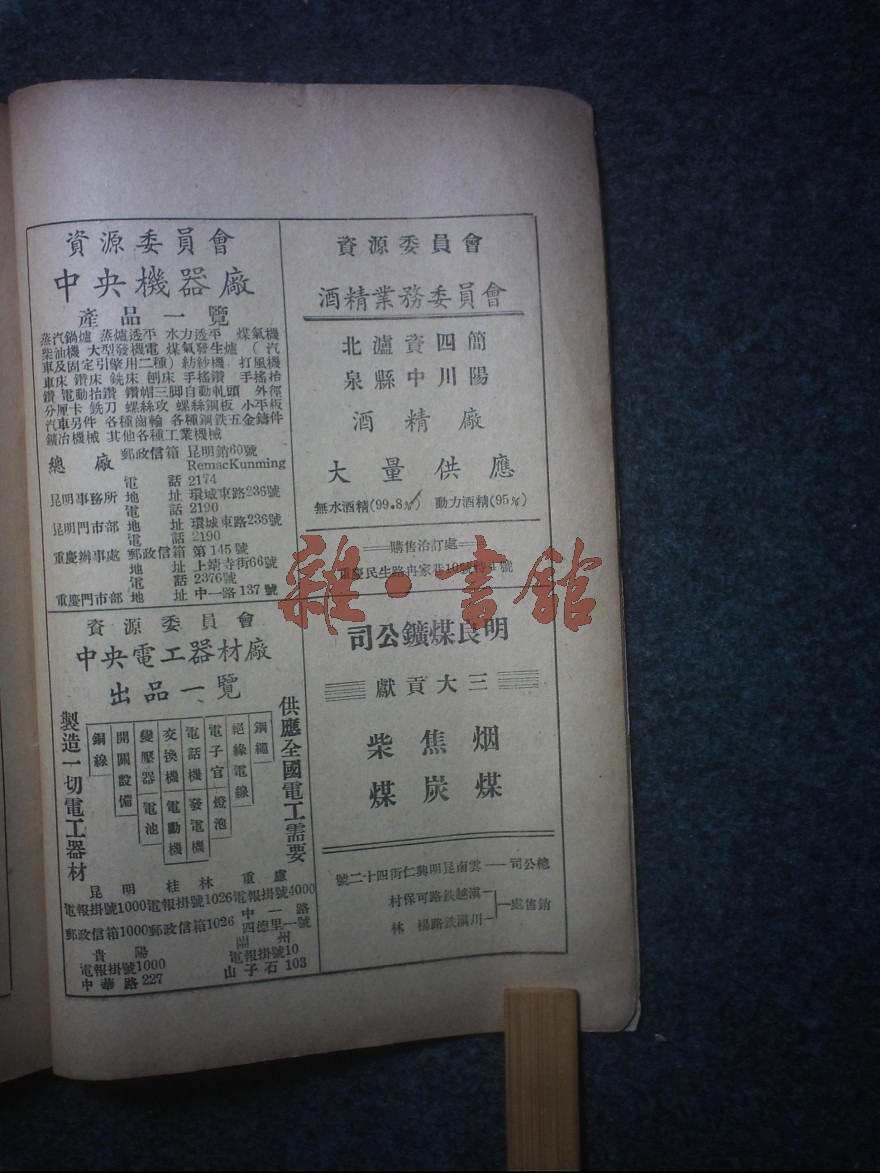 資源委員會
中央機器廠
產品一覽
蒸汽鍋爐 蒸爐透平 水力透平 煤氣機
柴油機 大型發機電 煤氣發生爐 (汽
車及固定引擎用二種) 紡紗機 打風機
車床 鑽床 銑床 刨床 手搖鑽 手搖枱
鑽 電動抬鑽 鑽帽三脚自動軋頭 外徑
分厘卡 銑刀 螺絲攻 螺絲鋼板 小平板
汽車另件 各種齒輪 各種鋼鉄五金鑄件
鑛冶機械 其他各種工業機械
總廠 郵政信箱 昆明銷60號
RemacKunming
電話 2174
昆明事務所 地址 環城東路236號
電話 2190
昆明門市部 地址 環城東路236號
電話 2190
重慶辦事處 郵政信箱 第145號
地址 上靖寺街66號
電話 2376號
重慶門市部 地址 中一路137號
資源委員會
酒精業務委員會
簡四資瀘北
陽川中縣泉
酒精廠
大量供應
無水酒精(99.8%) 動力酒精(95%)
購售洽訂處
重慶民生路冉家巷10號特1號
資源委員會
中央電工器材廠
出品一覽
供應全國電工需要
鋼繩
絕緣電線
電子官 燈泡
電話機 發電機
交換機 電動機
變壓器 電池
開關設備
銅線
製造一切電工器材
昆明 桂林 重慶
電報掛號1000 電報掛號1026 電報掛號4000
郵政信箱1000 郵政信箱1026 中一路
四德里一號
貴陽 蘭州
電報掛號1000 電報掛號10
中華路227 山子石103
明良煤鑛公司
三大貢獻
烟焦柴
煤炭煤
總公司 雲南昆明興仁街四十二號
銷售處 滇越鉄路可保村
川滇鉄路楊林
雜·書館